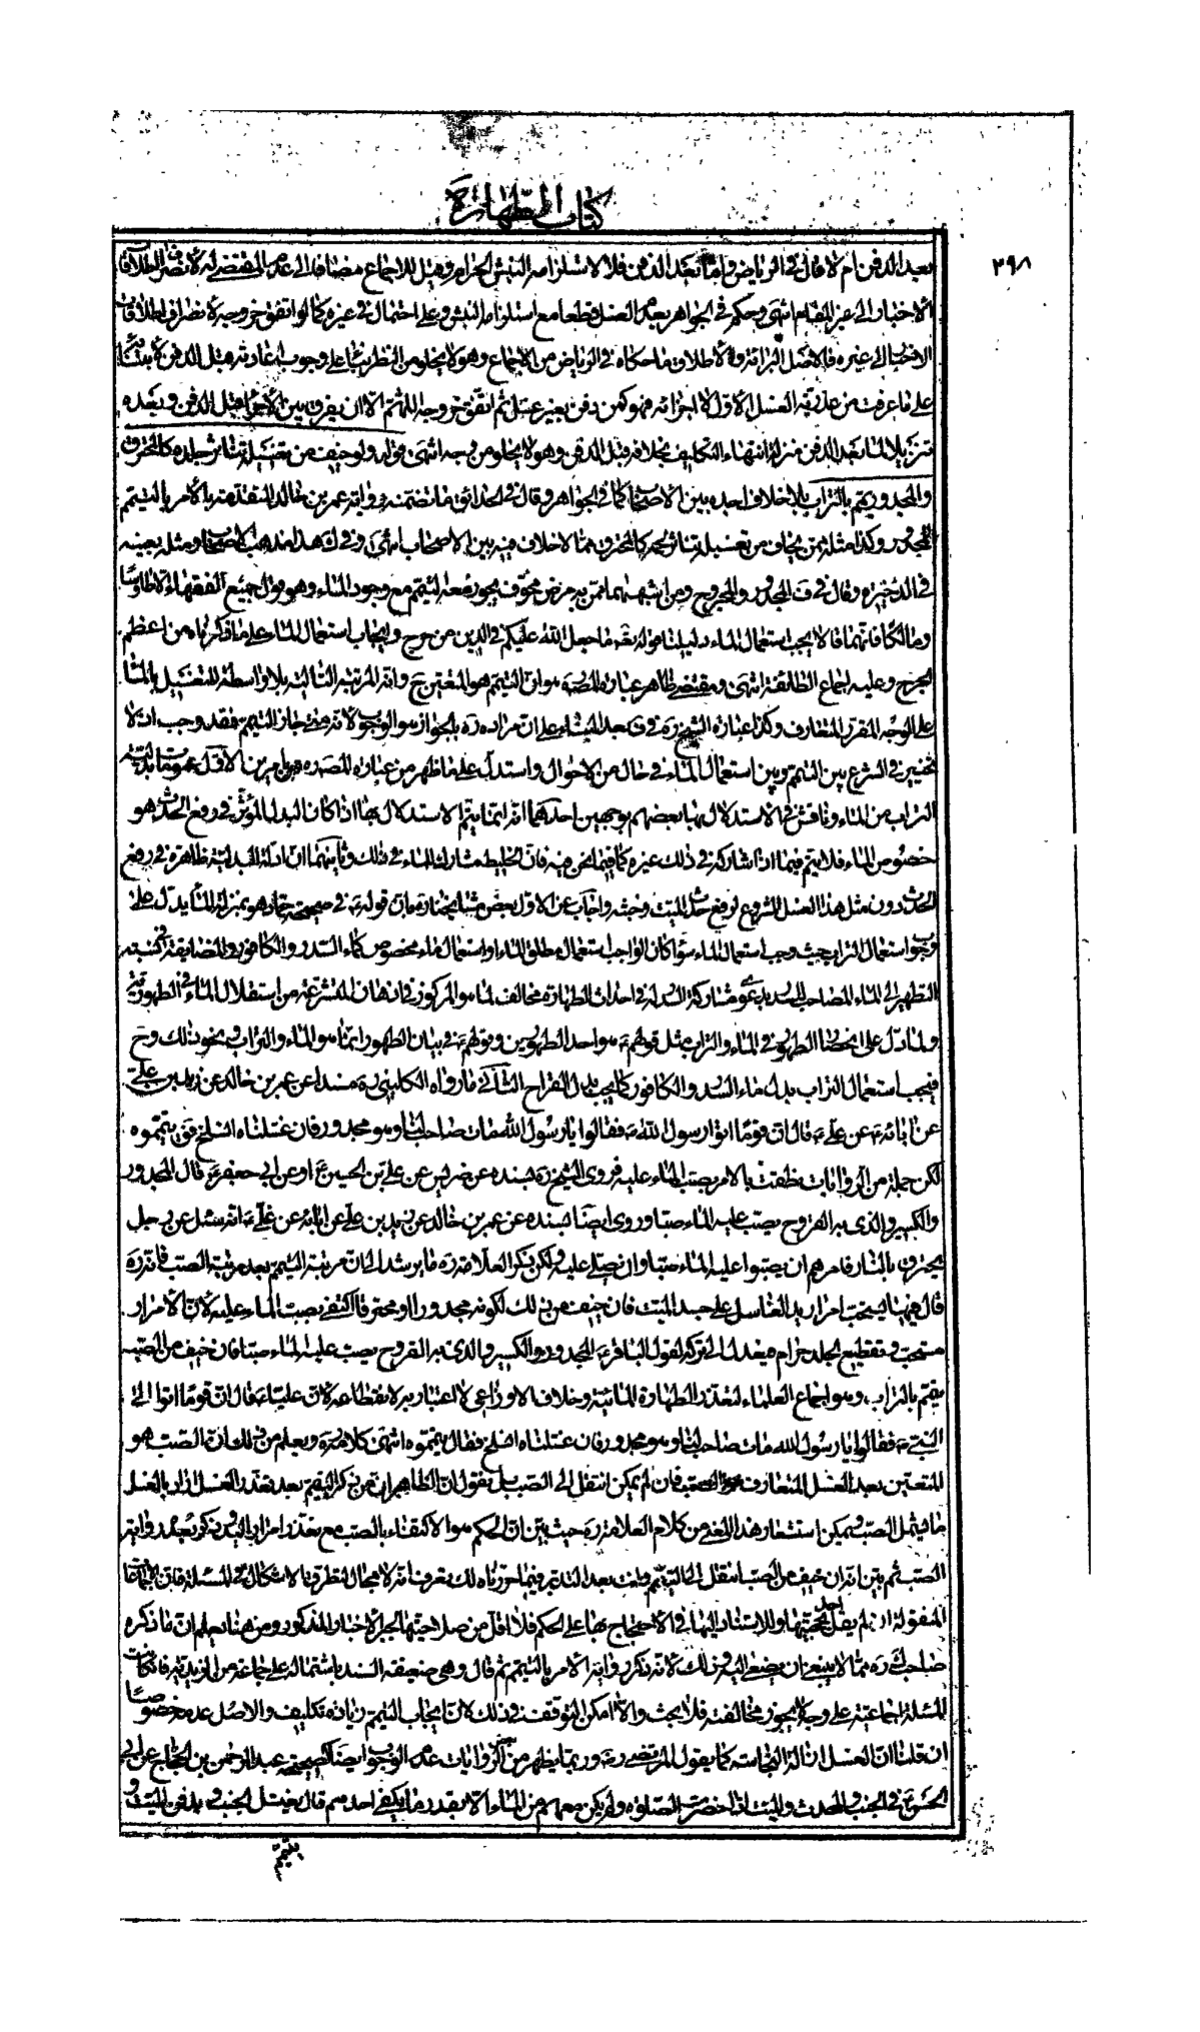 كتاب الطهارة
٢٩٨
بعد الدفن ام لا قال في الرياض واما بعد الدفن فلا لاستلزامه النبش الحرام وقيل للاجماع مضافا الى عدم المقتضي له لانصراف اطلاقات
الاخبار الى غير المقام انتهى وحكم في الجواهر بعدم الغسل قطعا مع استلزامه النبش وعلى احتمال في غيره كما لو اتفق خروجه لانصراف اطلاقات
الى غيره فالاصل البرائة ولاطلاق ما حكاه في الرياض من الاجماع وهو لا يخلو من النظر بناء على وجوب اعادته قبل الدفن لابتنائه
على ما عرفت من عدم الغسل الاول لا اجزائه فهو كمن دفن بغير غسل ثم اتفق خروجه اللهم الا ان يفرق بين الاجزاء قبل الدفن وبعده
تنزيلا لما بعد الدفن منزلة انتهاء التكليف بخلافه قبل الدفن وهو لا يخلو من وجه انتهى قوله ولو خيف من تغسيله تناثر جلده كالمحترق
والمجدور يتم بالتراب بلا خلاف اجده بين الاصحاب كما في الجواهر وقال في الحدائق ما تضمنته رواية عمر بن خالد المتقدمة بالامر بالتيمم
المجدور وكذا مثله ممن يخاف من تغسيله تناثر لحمه كالمحترق مما لا خلاف فيه بين الاصحاب انتهى وفي ك هذا مذهب الاصحاب ومثله بعينه
في الذخيرة وقال في ف المجدور والمجروح ومن اشبههما ممن به مرض مخوف يجوز معه التيمم مع وجود الماء وهو قول جميع الفقهاء الا طاوسا
ومالكا فانهما قالا يجب استعمال الماء دليلنا قوله تعالى ما جعل الله عليكم في الدين من حرج وايجاب استعمال الماء على ما ذكرناه من اعظم
الحرج وعليه اجماع الطائفة انتهى ومقتضى ظاهر عبارة المصنف هو ان التيمم هو المتعين ح وانه المرتبة التالية بلا واسطة للتغسيل بالماء
على الوجه المقرر المتعارف وكذا عبارة الشيخ ره في ف بعد البناء على ان مراده ره بالجواز هو الوجوب لانه متى جاز التيمم فقد وجب اذ لا
تخيير في الشرع بين التيمم وبين استعمال الماء في حال من الاحوال واستدل على ما ظهر من عبارة المصنف ره بامرين الاول عموم بدلية
التراب من الماء وناقش في الاستدلال بها بعضهم بوجهين احدهما انه انما يتم الاستدلال بها اذا كان البدل المؤثر في رفع الحدث هو
خصوص الماء فلا يتم فيما اذا شاركه في ذلك غيره كما فيما نحن فيه فان الخليط مشارك للماء في ذلك وثانيهما ان ادلة البدلية ظاهرة في رفع
الحدث دون مثل هذا الغسل المشروع لرفع حدث الميت وخبثه واجاب عن الاول بعض مشايخنا ره بان قوله ع في صحيحة حماد هو بمنزلة الماء يدل على
وجوب استعمال التراب حيث وجب استعمال الماء سواء كان الواجب استعمال مطلق الماء او استعمال ماء مخصوص كماء السدر والكافور والمضايقة في نسبته
التطهير الى الماء المصاحب للسدر بدعوى مشاركة السدر له في احداث الطهارة مخالف لما هو المركوز في اذهان المتشرعة من استقلال الماء في الطهورية
ولما دل على انحصار الطهور في الماء والتراب مثل قولهم ع هو احد الطهورين وقولهم ع في بيان الطهور انما هو الماء والتراب ونحو ذلك وح
فيجب استعمال التراب بدل ماء السدر والكافور كما يجب بدل القراح الثاني ما رواه الكليني ره مسندا عن عمر بن خالد عن زيد بن علي
عن آبائه ع عن علي ع قال ان قوما اتوا رسول الله ص فقالوا يا رسول الله مات صاحب لنا وهو مجدور فان غسلناه انسلخ فق يمموه
لكن جملة من الروايات نطقت بالامر بصب الماء عليه فروى الشيخ ره بسنده عن ضريس عن علي بن الحسين ع او عن ابي جعفر ع قال المجدور
والكسير والذي به القروح يصب عليه الماء صبا وروى ايضا بسنده عن عمر بن خالد عن زيد بن علي عن آبائه عن علي ع انه سئل عن رجل
يحترق بالنار فامرهم ان يصبوا عليه الماء صبا وان يصلى عليه ولكن ذكر العلامة ره ما يرشد الى ان مرتبة التيمم بعد مرتبة الصب فانه ره
قال في يستحب امرار يد الغاسل على جسد الميت فان خيف من ذلك لكونه مجدورا او محترقا اكتفى بصب الماء عليه لان الامرار
مستحب وتقطيع الجلد حرام فيعدل الى تركه لقول الباقر ع المجدور والكسير والذي به القروح يصب عليه الماء صبا فان خيف من الصب
يتيمم بالتراب وهو اجماع العلماء لتعذر الطهارة المائية وخلاف الاوزاعي لا اعتبار به لانقطاعه لان عليا ع قال ان قوما اتوا الى
النبي ص فقالوا يا رسول الله مات صاحب لنا وهو مجدور فان غسلناه انسلخ فقال يمموه انتهى كلامه ره ويعلم من ذلك ان الصب هو
المتعين بعد الغسل المتعارف فان لم يمكن انتقل الى الصب بل نقول ان الظاهر ان من ذكر التيمم بعد تعذر الغسل اراد بالغسل
ما يشمل الصب ويمكن استشعار هذا المعنى من كلام العلامة ره حيث بين ان الحكم هو الاكتفاء بالصب مع تعذر امرار اليد وذكر بعده رواية
الصب ثم بين انه ان خيف من الصب انتقل الى التيمم قلت بعد التدبر فيما حررناه لك تعرف انه لا مجال لتطرق الاشكال في المسئلة فان الاجماعات
المنقولة ان لم يقل احد بحجيتها والاستناد اليها في الاحتجاج بها على الحكم فلا اقل من صلاحيتها لجبر الاخبار المذكورة ومن هنا يعلم ان ما ذكره
صاحب ك ره مما لا ينبغي ان يصغى اليه وذلك لانه ذكر رواية الامر بالتيمم ثم قال وهي ضعيفة السند باشتماله على جماعة من الزيدية فان كانت
المسئلة اجماعية على وجه لا يجوز مخالفته فلا بحث والا امكن التوقف في ذلك لان ايجاب التيمم زيادة تكليف والاصل عدمه خصوصا
ان قلنا ان الغسل ازالة النجاسة كما يقول المرتضى ره وربما يظهر من الروايات عدم الوجوب ايضا كصحيحة عبد الرحمن بن الحجاج عن ابي
الحسن ع في الجنب والمحدث والميت اذا حضرت الصلوة ولم يكن معهم من الماء الا بقدر ما يكفي احدهم قال يغتسل الجنب ويدفن الميت و
يتيمم